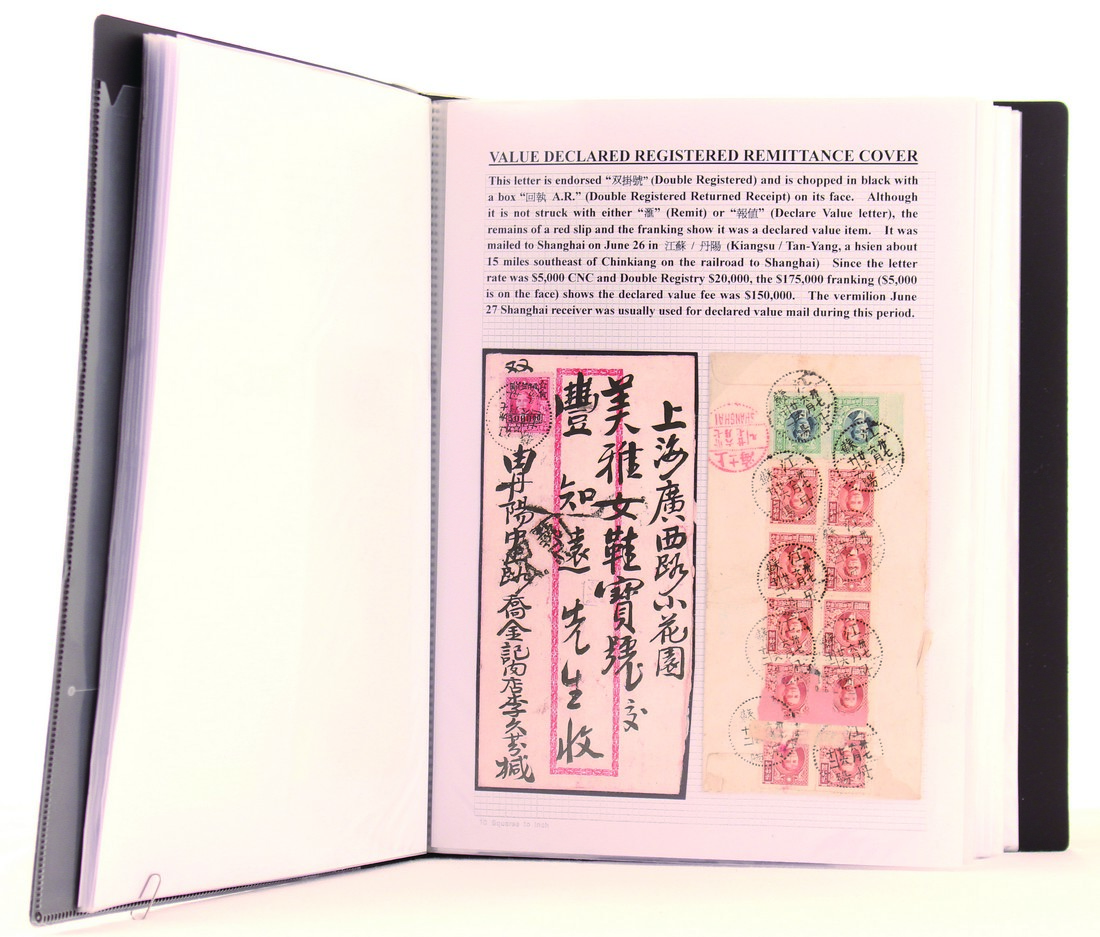 VALUE DECLARED REGISTERED REMITTANCE COVER
This letter is endorsed “双掛號” (Double Registered) and is chopped in black with
a box “回執 A.R.” (Double Registered Returned Receipt) on its face. Although
it is not struck with either “滙” (Remit) or “報値” (Declare Value letter), the
remains of a red slip and the franking show it was a declared value item. It was
mailed to Shanghai on June 26 in 江蘇 / 丹陽 (Kiangsu / Tan-Yang, a hsien about
15 miles southeast of Chinkiang on the railroad to Shanghai) Since the letter
rate was $5,000 CNC and Double Registry $20,000, the $175,000 franking ($5,000
is on the face) shows the declared value fee was $150,000. The vermilion June
27 Shanghai receiver was usually used for declared value mail during this period.
双
上海廣西路小花園
美雅女鞋寶號交
豐知遠先生收
由丹陽
喬金記
商店李久芬緘
上海
SHANGHAI
10 Squares to Inch